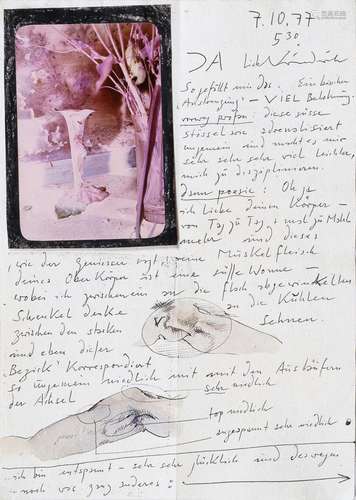 7.10.77
5 30
JA liebe
So gefällt mir das. Ein bisschen
Anstrengung - VIEL Belohnung.
vorweg prosa: diese süsse
ungemein und macht es mir
sehr sehr sehr viel leichter,
mich zu disziplinieren.
dann poesie: Oh je
ich liebe deinen Körper -
von Tag zu Tag und
mehr und dieses
Muskelfleisch
deines Oberkörper ist eine süsse Wonne -
wobei ich zwischen in an die flach abgewinkelten
Schenkel denke
an die kühlen
Sehnen.
zwischen den starken
und eben dieser
Bezirk korrespondiert
so ungemein niedlich mit mit den Ausläufern
der Achsel
sehr niedlich
top niedlich
angespannt sehr niedlich
ich bin entspannt - sehr sehr glücklich und deswegen
noch was ganz anderes: